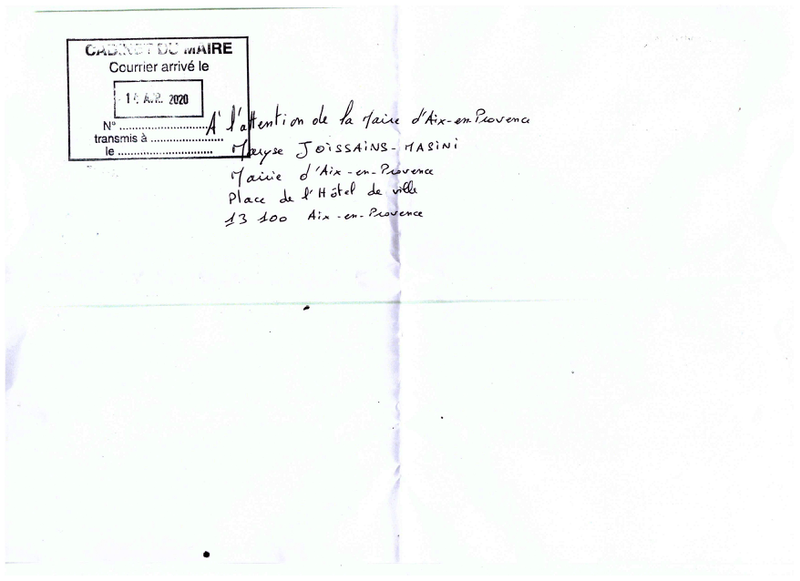 CABINET DU MAIRE
Courrier arrivé le
AVR. 2020
N° ........................
transmis à ..................
le ........................
A l'attention de la Maire d'Aix-en-Provence
Maryse JOISSAINS-MASINI
Mairie d'Aix-en-Provence
Place de l'Hôtel de ville
13 100 Aix-en-Provence